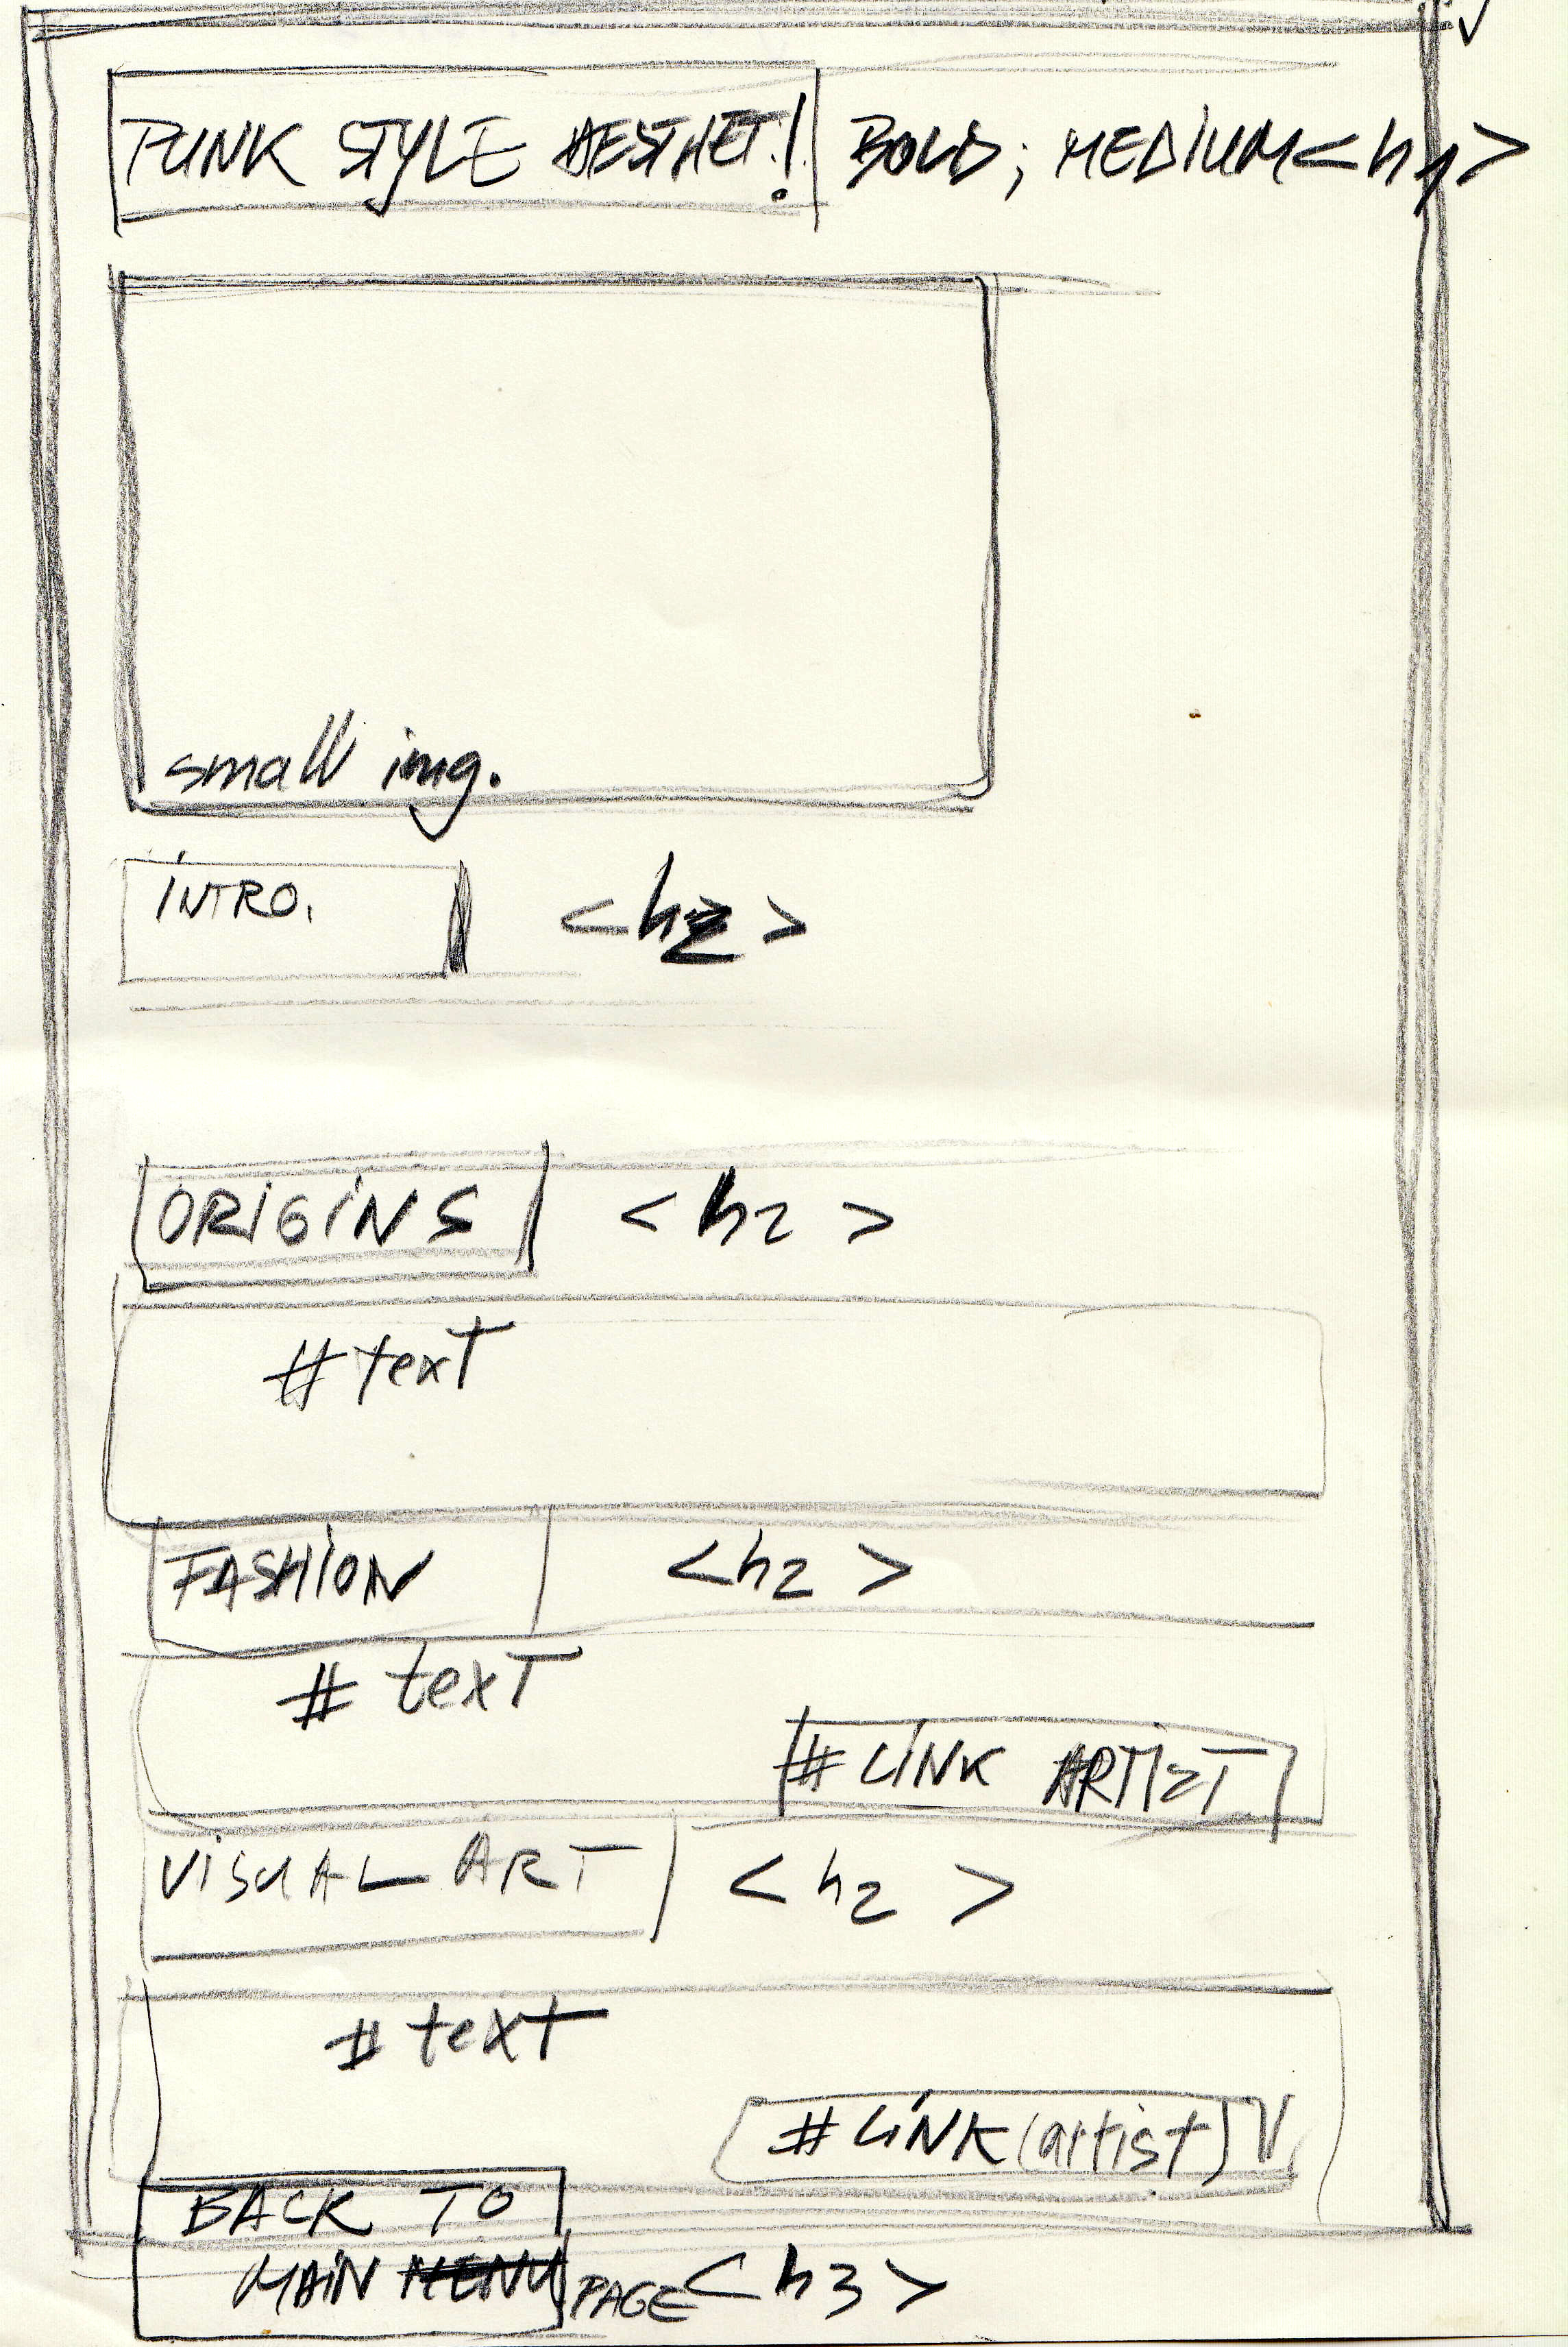 PUNK STYLE AESTHET.! BOLD; MEDIUM <h1>
small img.
INTRO. <h2>
ORIGINS <h2>
# text
FASHION <h2>
# text
# LINK ARTIST
VISUAL ART <h2>
# text
# LINK (artist)
BACK TO
MAIN MENU PAGE <h3>